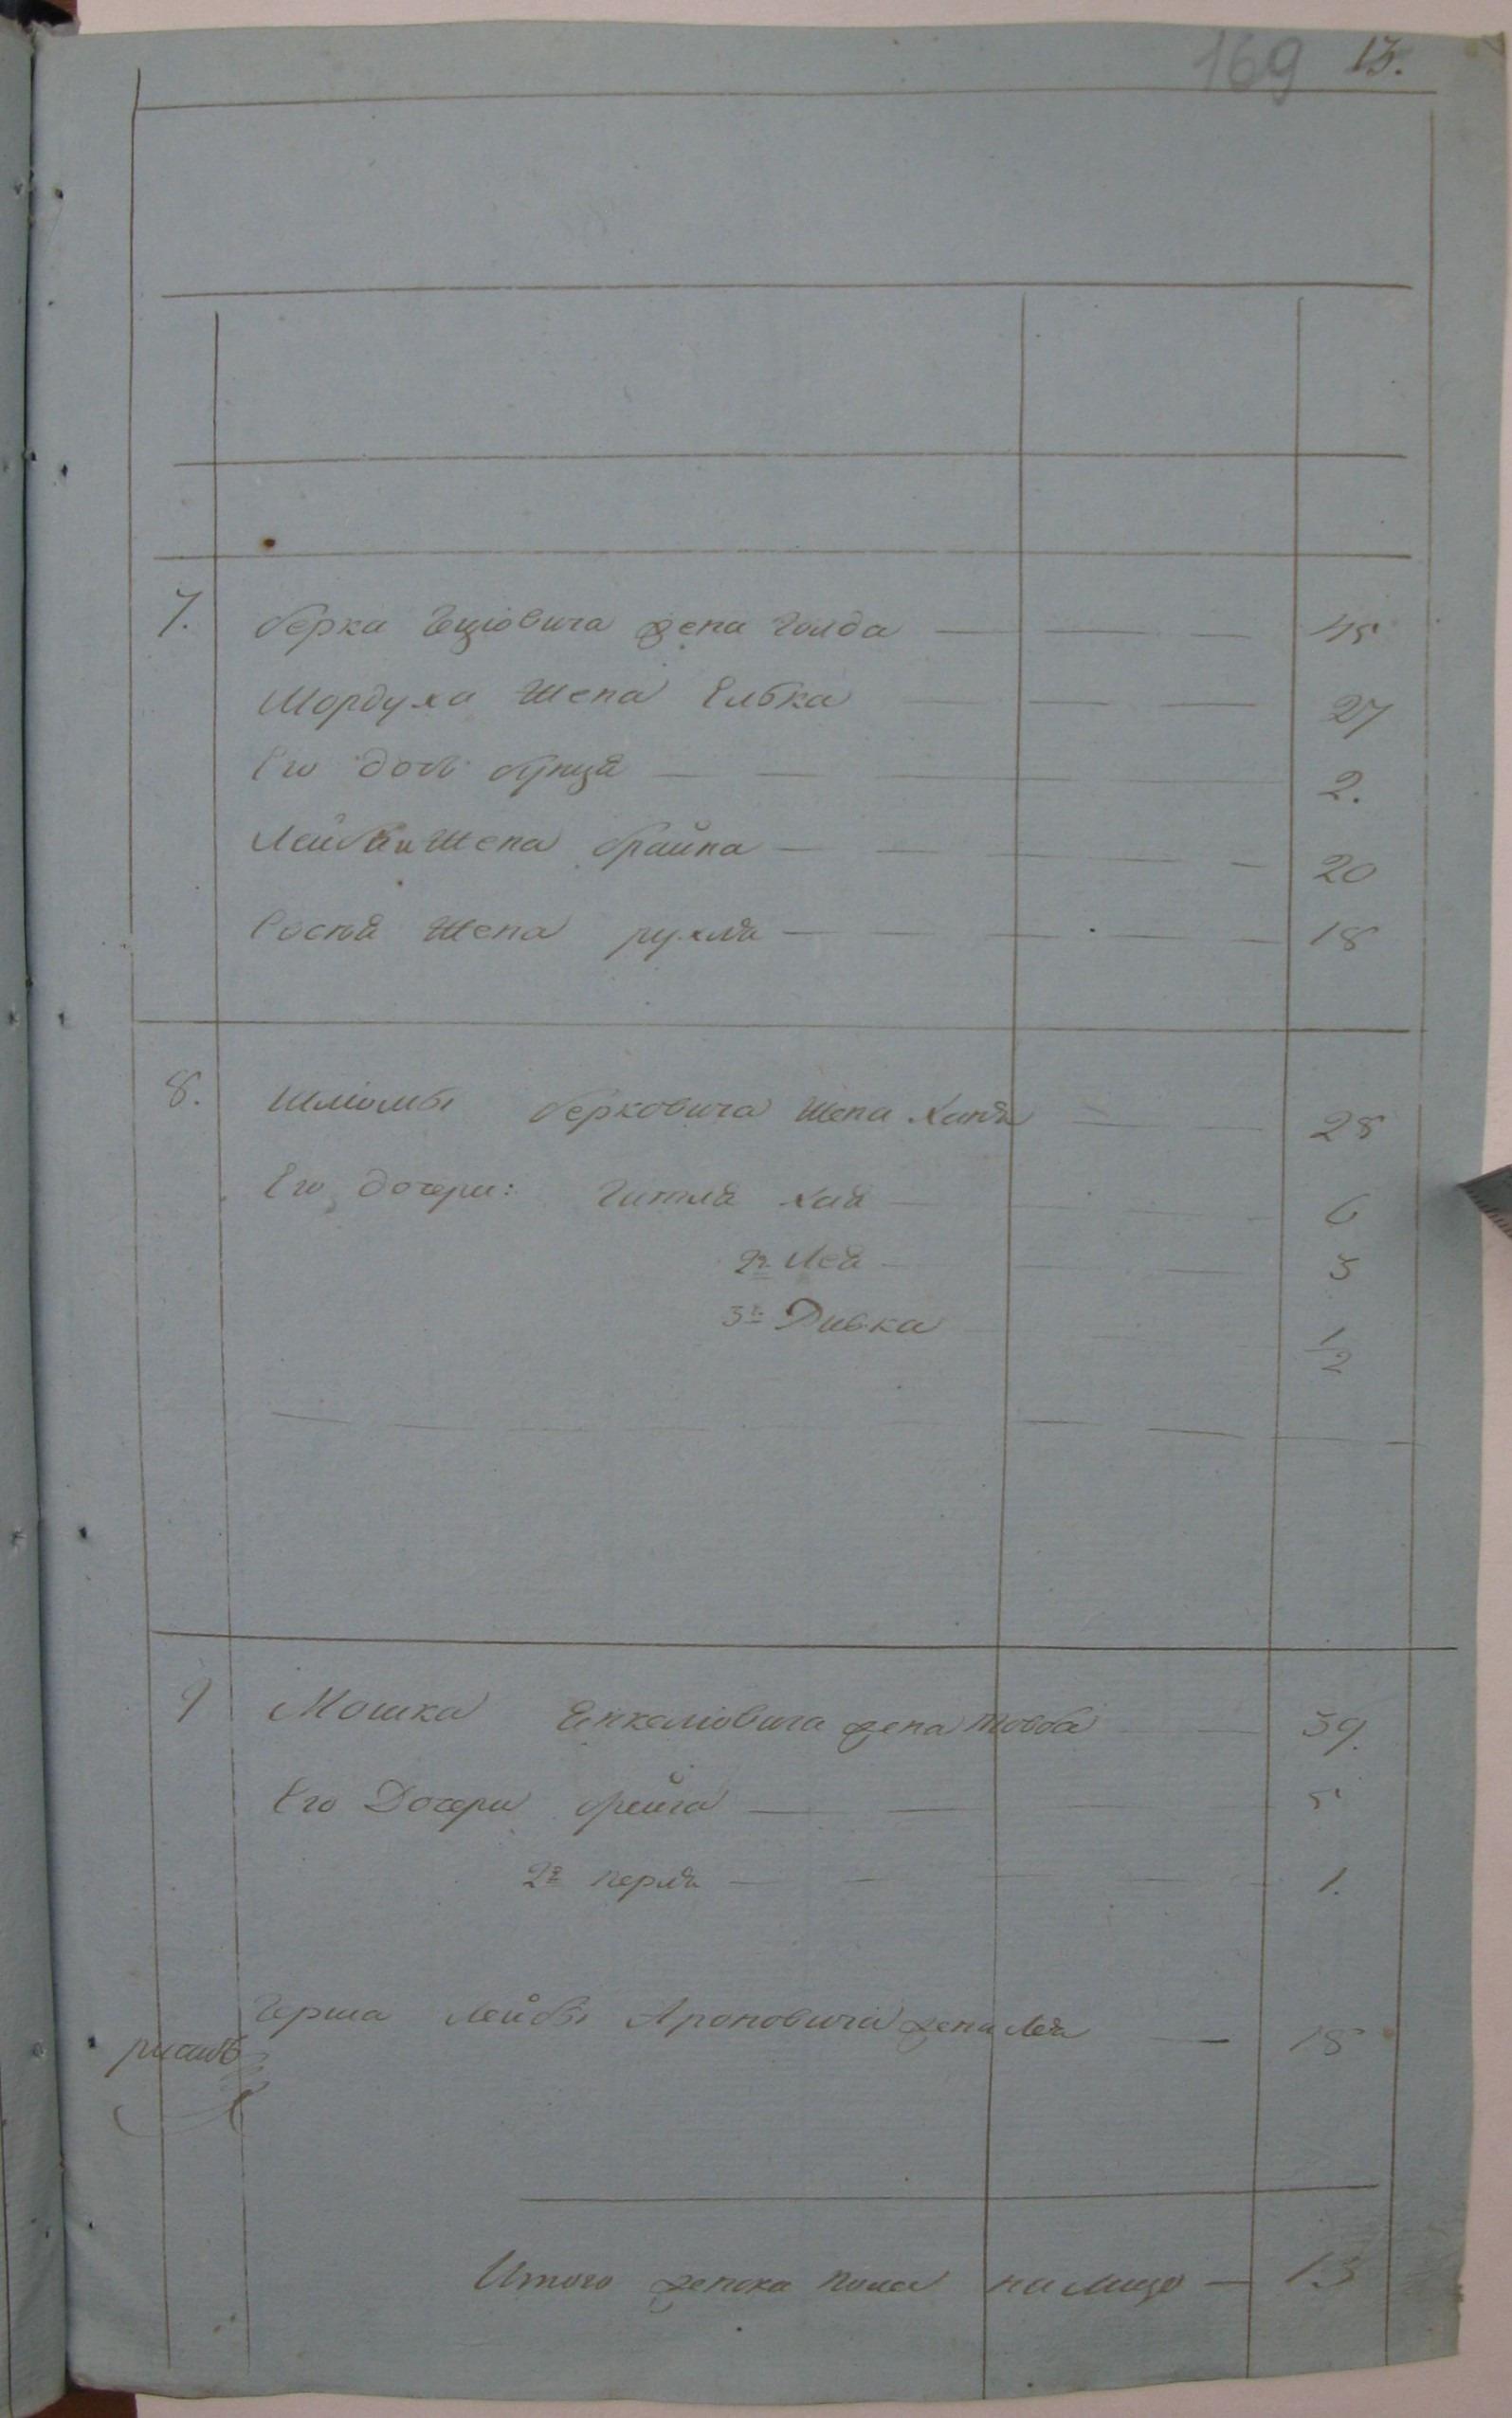 169 13.
7. Берка Ецiовича жена Голда — 45
Мордуха жена Елька — 27
Его дочь — 2.
Лейбы жена Брайна — 20
жена рухля — 18
8. Шлиомы Берковича жена Хана — 28
Его дочери: Гитля Хая — 6
2я Лея — 3
3я Ривка — 1/2
9 Мошка Енкелiовича жена Товба — 39.
Его Дочери Фейга — 5
2я перля — 1.
Герша Лейбы Ароновича жена Лея — 18
Итого женска пола на лицо — 13